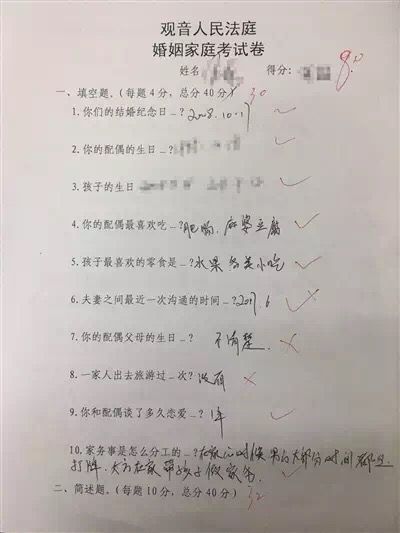 观音人民法庭
婚姻家庭考试卷
姓名 得分： 80
一、填空题。（每题4分，总分40分） 30
1. 你们的结婚纪念日…？2008.10.17
2. 你的配偶的生日…？
3. 孩子的生日
4. 你的配偶最喜欢吃…？肥肠，麻婆豆腐
5. 孩子最喜欢的零食是…？水果 各类小吃
6. 夫妻之间最近一次沟通的时间…？2017.6
7. 你的配偶父母的生日…？ 不清楚.
8. 一家人出去旅游过…次？没有
9. 你和配偶谈了多久恋爱…？1年
10. 家务事是怎么分工的…？在家的时候 男的大部分时间都
打牌. 在家带孩子做家务
二、简述题。（每题10分，总分40分） 32